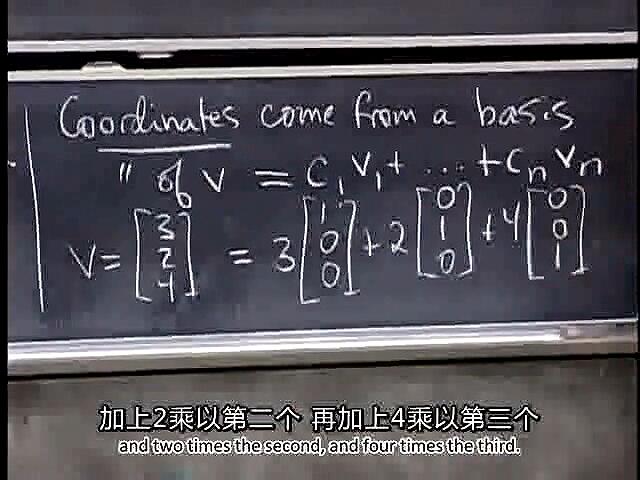 Coordinates come from a basis
" of v = c₁v₁ + ... + cₙvₙ
v = [3 2 4] = 3[1 0 0] + 2[0 1 0] + 4[0 0 1]
加上2乘以第二个 再加上4乘以第三个
and two times the second, and four times the third.